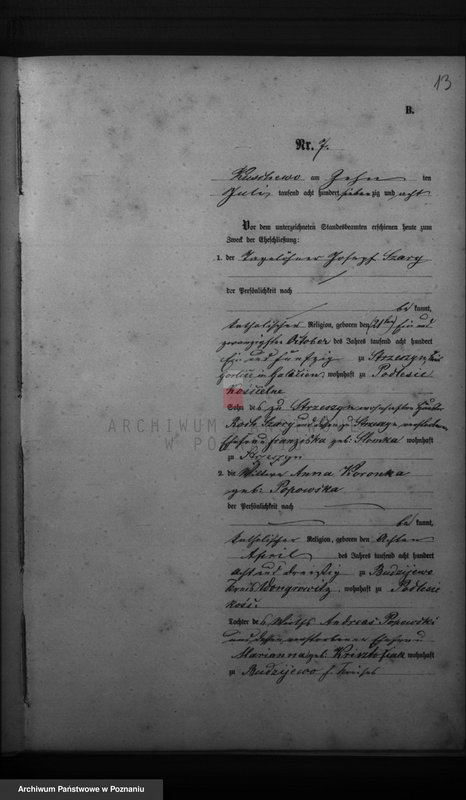 13
B.
Nr. 7.
am Zehn ten
Juli tausend acht hundert siebenzig und acht
Vor dem unterzeichneten Standesbeamten erschienen heute zum
Zweck der Eheschließung:
1. der Tagelöhner Joseph Szary
der Persönlichkeit nach
be kannt,
katholischer Religion, geboren den (21ten) Ein und
zwanzigsten October des Jahres tausend acht hundert
Ein und fünfzig zu Strzeszyn
Gorlice in Galizien, wohnhaft zu Podlesie
Kościelne
Sohn des zu Strzeszyn wohnhaften
Szary und dessen zu verstorbenen
Ehefrau Franziska geb: Slomka wohnhaft
zu Strzeszyn
2. die Wittwe Anna Woronka
geb: Popowska
der Persönlichkeit nach
be kannt,
katholischer Religion, geboren den Achten
April des Jahres tausend acht hundert
Acht und dreißig zu Budziejewo
Kreis Wongrowitz, wohnhaft zu Podlesie
kość.
Tochter des Wirths Andreas Popowski
und dessen verstorbenen Ehefrau
Marianna geb: wohnhaft
zu Budziejewo
ARCHIWUM
W PO
Archiwum Państwowe w Poznaniu